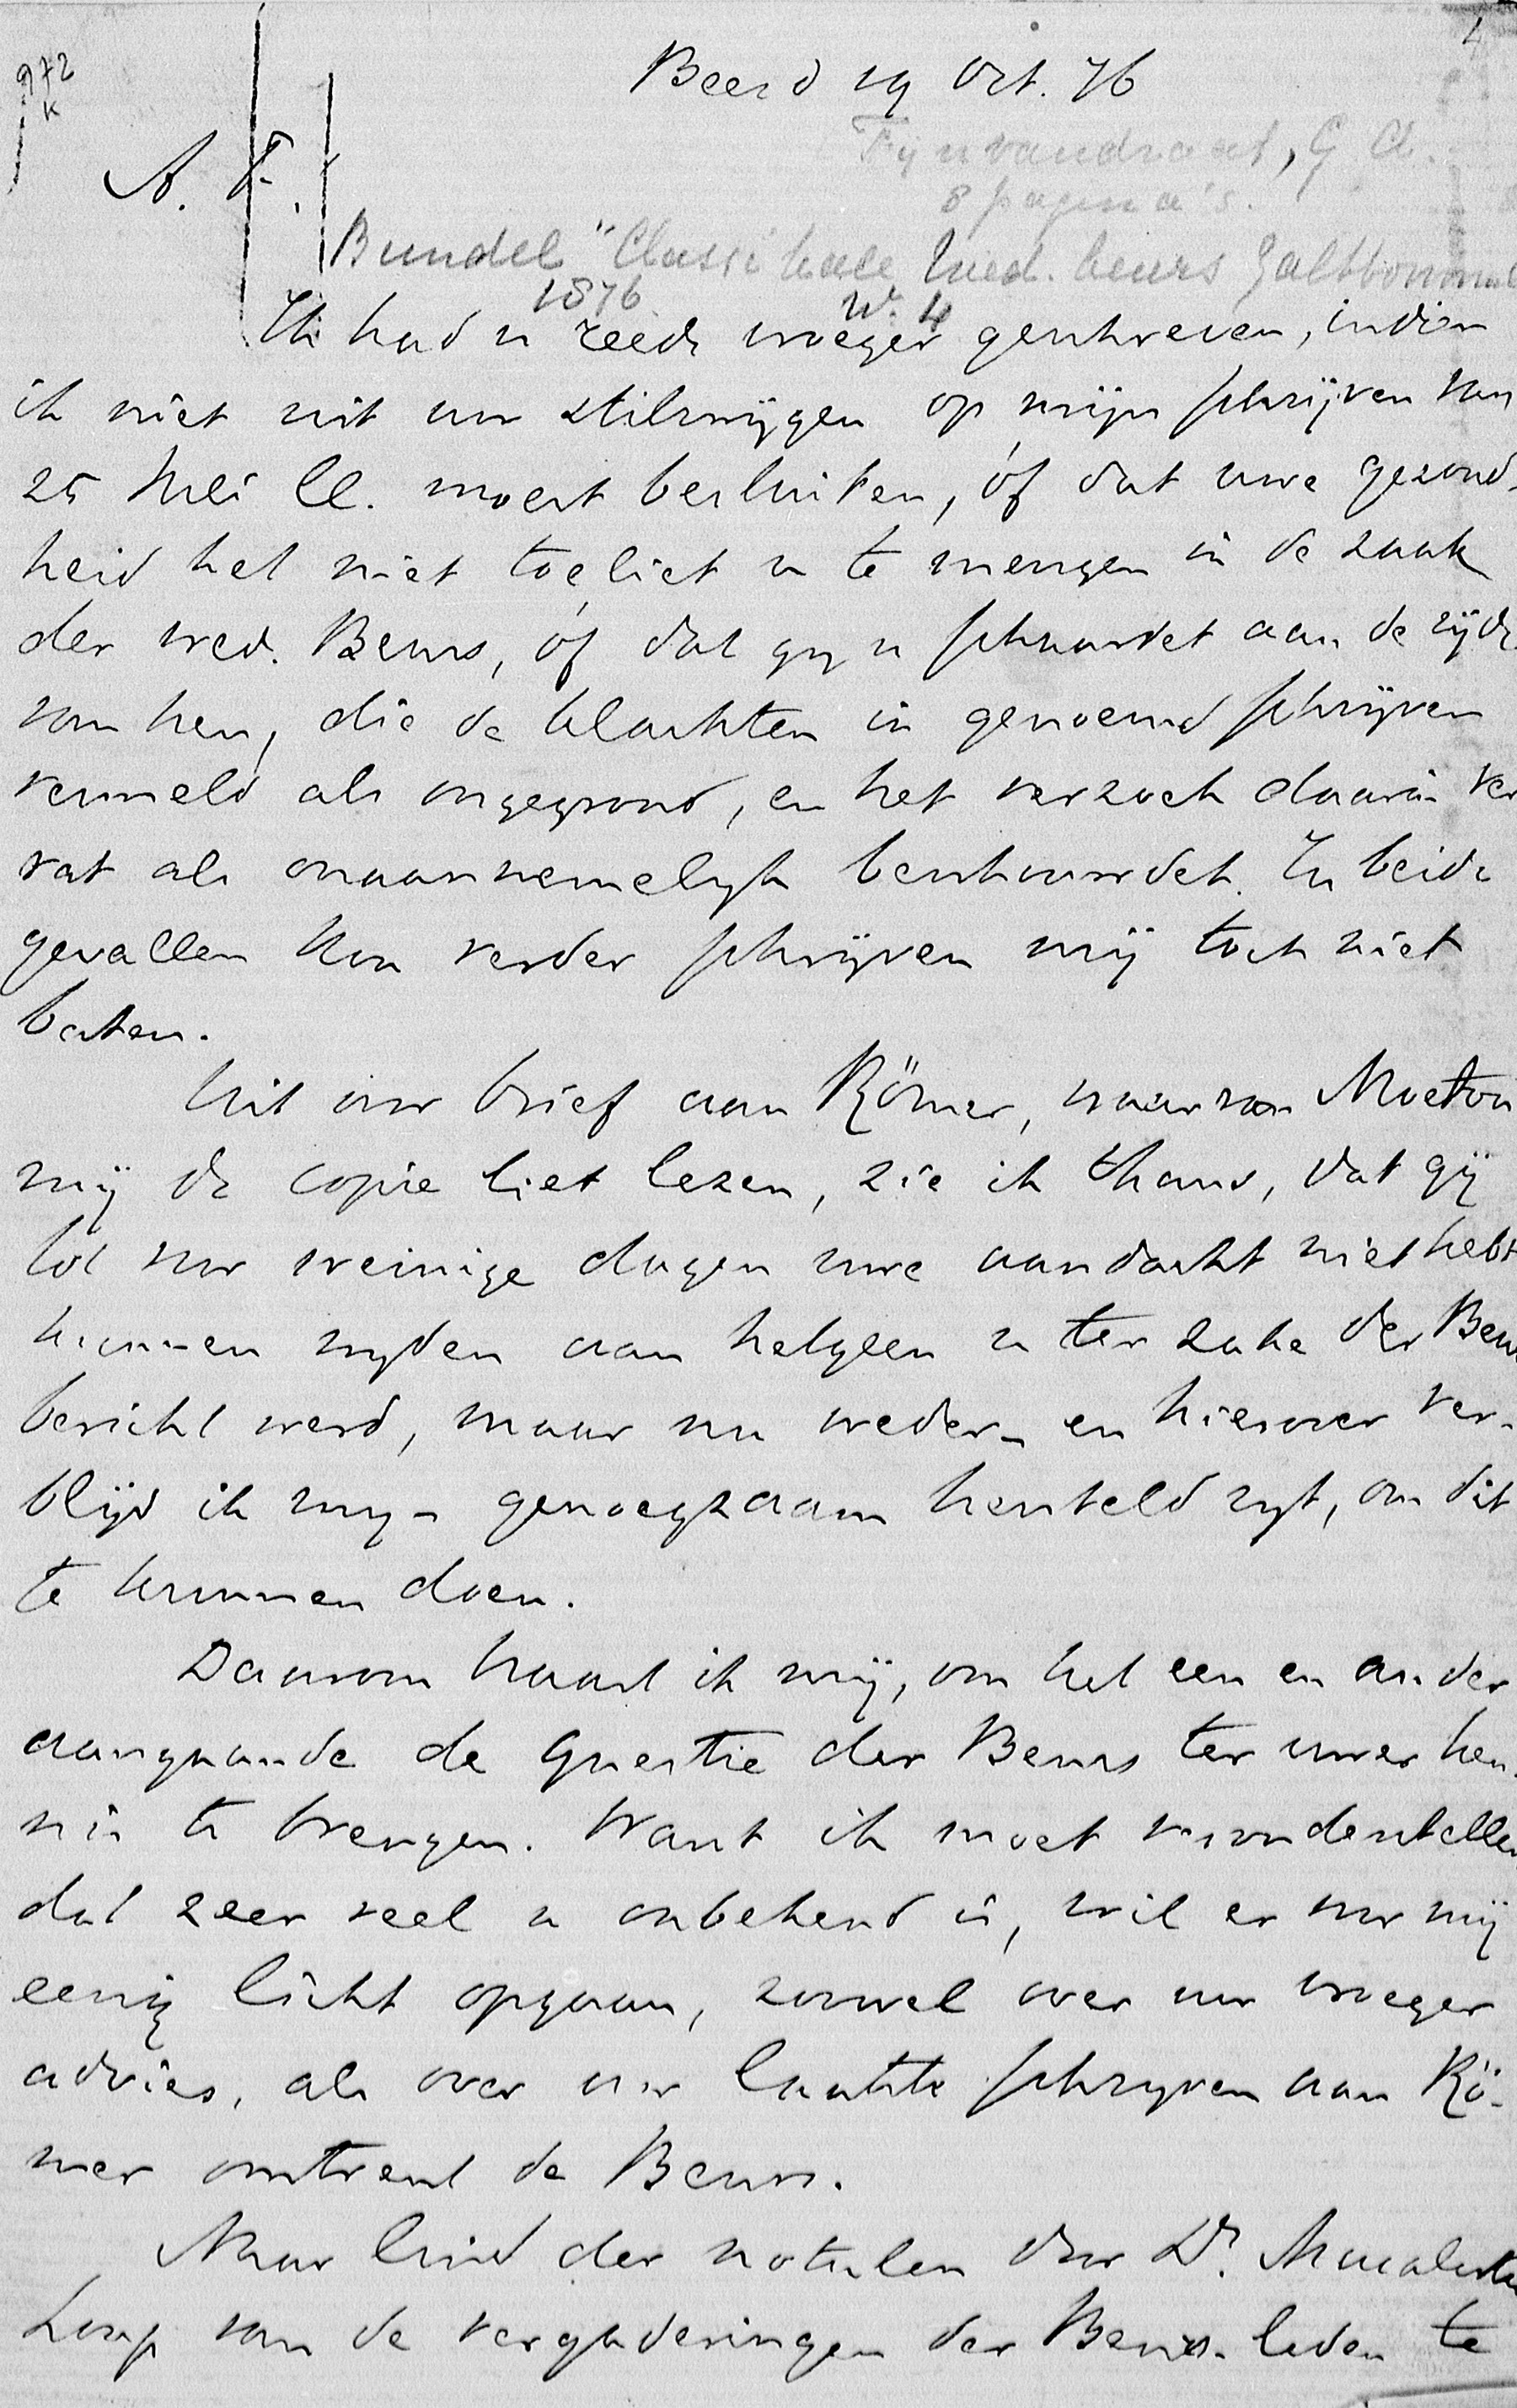 4
972
K
Beesd 19 Oct. 76
Fynvandraat, G Ch.
8 pagina's.
A. F.
Bundel "Classikale Wed. beurs Zaltbommel
1876 No. 4
Ik had u reeds vroeger geschreven, indien
ik niet uit uw stilzwijgen op mijn schrijven van
25 Mei ll. moest besluiten, óf dat uwe gezond-
heid het niet toeliet u te mengen in de zaak
der wed. Beurs, óf dat gij u schaardet aan de zijde
van hen, die de klachten in genoemd schrijven
vermeld als ongegrond, en het verzoek daarin ver
vat als onaannemelijk beschouwdet. In beide
gevallen kon verder schrijven mij toch niet
baten.
Uit uw brief aan Römer, waarvan Moeton
mij de copie liet lezen, zie ik thans, dat gij
tot voor weinige dagen uwe aandacht niet hebt
kunnen wijden aan hetgeen u ter zake der Beurs
bericht werd, maar nu weder - en hierover ver-
blijd ik mij - genoegzaam hersteld zijt, om dit
te kunnen doen.
Daarom haast ik mij, om het een en ander
aangaande de questie der Beurs ter uwer ken-
nis te brengen. Want ik moet veronderstellen
dat zeer veel u onbekend is, wil er voor mij
eenig licht opgaan, zoowel over uw vroeger
advies, als over uw laatste schrijven aan Rö-
mer omtrent de Beurs.
Naar luid der notulen door Ds.
van de vergaderingen der Beurs-leden te